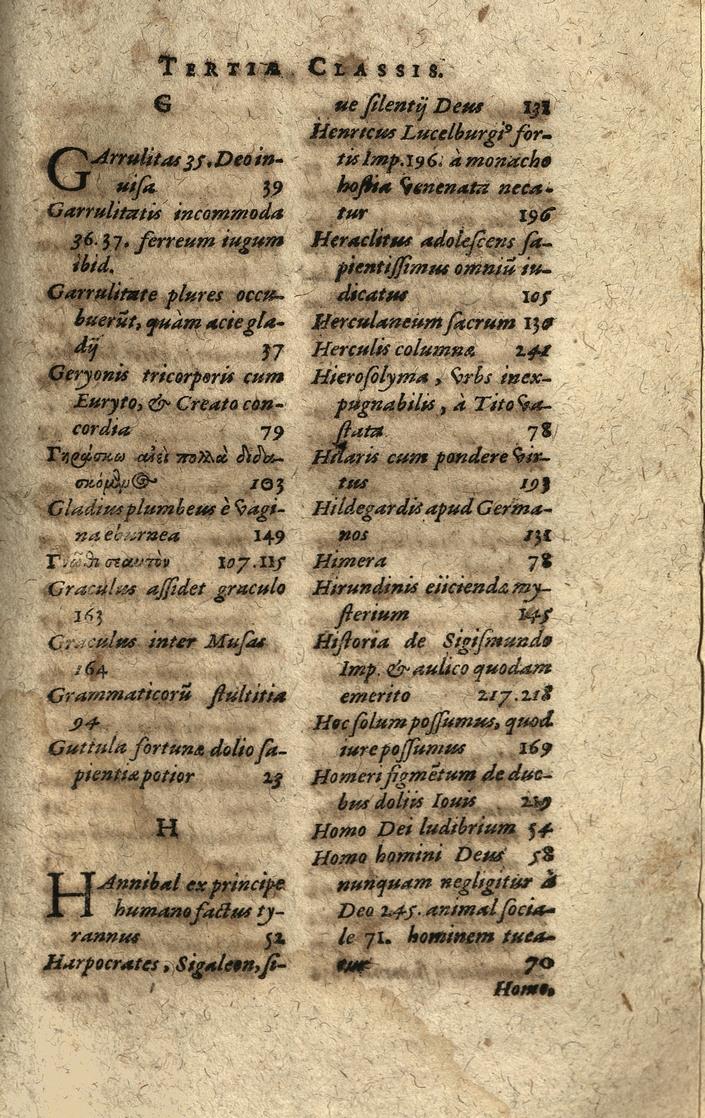 TERTIÆ CLASSIS.
G
GArrulitas 35. Deo in-
uisa 39
Garrulitatis incommoda
36.37. ferreum iugum
ibid.
Garrulitate plures occu-
buerūt, quàm acie gla-
dij 37
Geryonis tricorporis cum
Euryto, & Creato con-
cordia 79
Γηράσκω αἰεὶ πολλὰ διδα-
σκόμθμος 103
Gladius plumbeus è vagi-
na eburnea 149
Γνῶθι σεαυτὸν 107.115
Graculus assidet graculo
163
Graculus inter Musas
164
Grammaticorū stultitia
94
Guttula fortunæ dolio sa-
pientiæ potior 23
H
HAnnibal ex principe
humano factus ty-
rannus 52
Harpocrates, Sigaleon, si-
ue silentij Deus 131
Henricus Lucelburgi⁹ for-
tis Imp. 196. à monacho
hostia venenata neca-
tur 196
Heraclitus adolescens sa-
pientissimus omniū iu-
dicatus 105
Herculaneum sacrum 130
Herculis columnæ 241
Hierosolyma, vrbs inex-
pugnabilis, à Tito va-
stata 78
Hilaris cum pondere vir-
tus 193
Hildegardis apud Germa-
nos 131
Himera 78
Hirundinis eiiciendæ my-
sterium 145
Historia de Sigismundo
Imp. & aulico quodam
emerito 217.218
Hoc solum possumus, quod
iure possumus 169
Homeri figmētum de duo-
bus doliis Iouis
Homo Dei ludibrium 54
Homo homini Deus 58
nunquam negligitur à
Deo 245. animal socia-
le 71. hominem tuea-
tur 70
Homo.